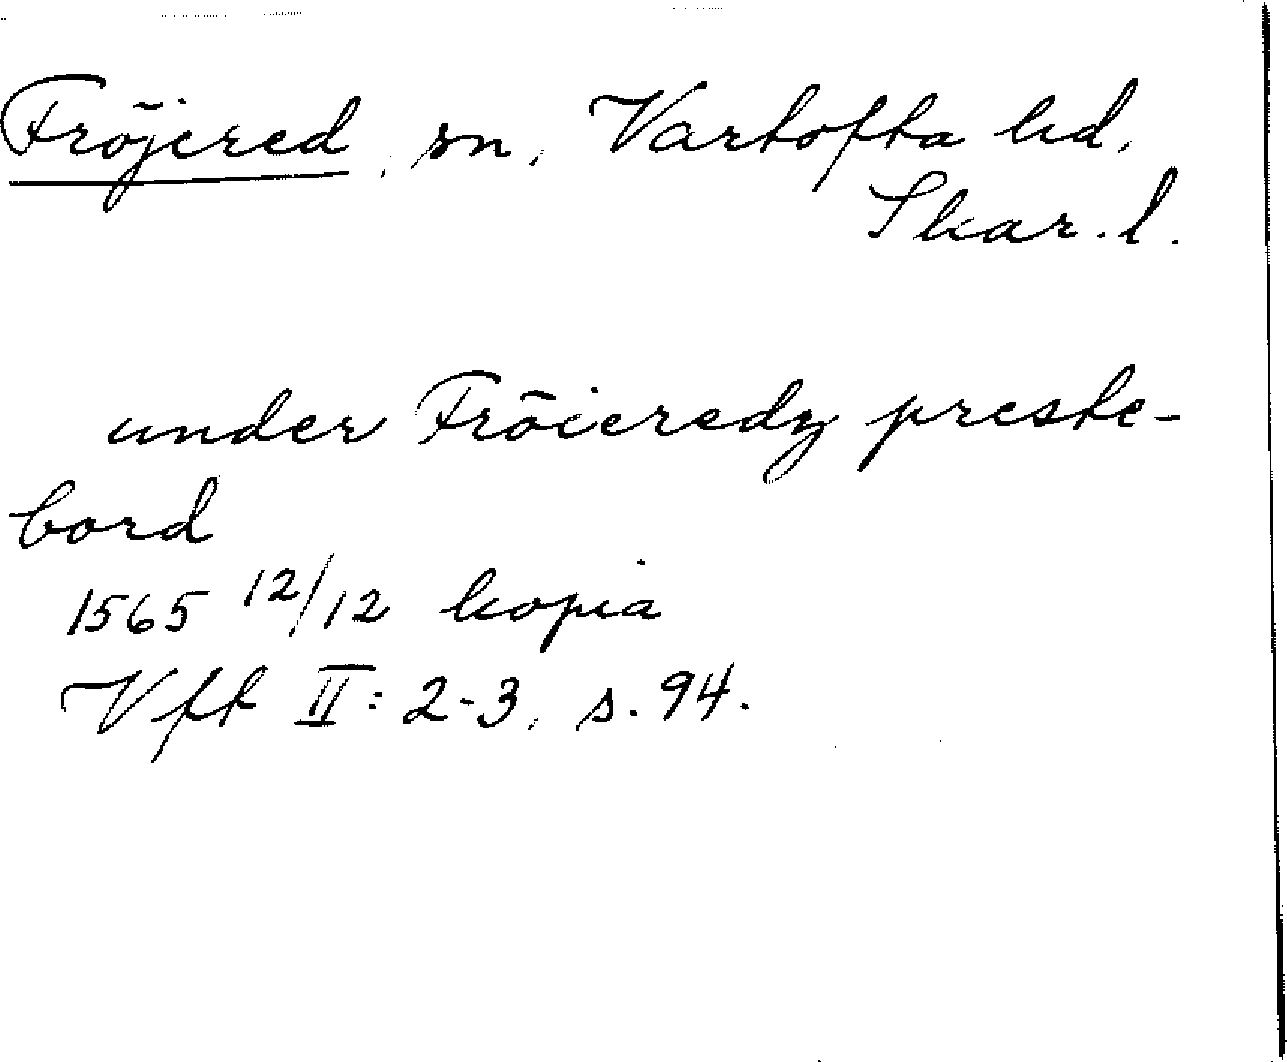 Fröjered, sn, Vartofta hd,
Skar. l.
under Fröieredz preste-
bord
1565 12/12 kopia
Vft II: 2-3, s. 94.